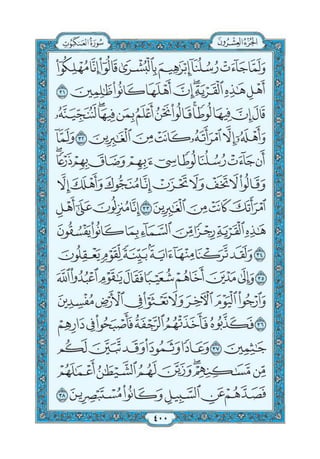 الجزء العشرون
سورة العنكبوت
وَلَمَّا جَآءَتْ رُسُلُنَآ إِبْرَٰهِيمَ بِٱلْبُشْرَىٰ قَالُوٓا۟ إِنَّا مُهْلِكُوٓا۟
أَهْلِ هَٰذِهِ ٱلْقَرْيَةِ ۖ إِنَّ أَهْلَهَا كَانُوا۟ ظَٰلِمِينَ ٣١
قَالَ إِنَّ فِيهَا لُوطًا ۚ قَالُوا۟ نَحْنُ أَعْلَمُ بِمَن فِيهَا ۖ لَنُنَجِّيَنَّهُۥ
وَأَهْلَهُۥٓ إِلَّا ٱمْرَأَتَهُۥ كَانَتْ مِنَ ٱلْغَٰبِرِينَ ٣٢ وَلَمَّآ
أَن جَآءَتْ رُسُلُنَا لُوطًا سِىٓءَ بِهِمْ وَضَاقَ بِهِمْ ذَرْعًا
وَقَالُوا۟ لَا تَخَفْ وَلَا تَحْزَنْ ۖ إِنَّا مُنَجُّوكَ وَأَهْلَكَ إِلَّا
ٱمْرَأَتَكَ كَانَتْ مِنَ ٱلْغَٰبِرِينَ ٣٣ إِنَّا مُنزِلُونَ عَلَىٰٓ أَهْلِ
هَٰذِهِ ٱلْقَرْيَةِ رِجْزًا مِّنَ ٱلسَّمَآءِ بِمَا كَانُوا۟ يَفْسُقُونَ
٣٤ وَلَقَد تَّرَكْنَا مِنْهَآ ءَايَةًۢ بَيِّنَةً لِّقَوْمٍ يَعْقِلُونَ
٣٥ وَإِلَىٰ مَدْيَنَ أَخَاهُمْ شُعَيْبًا فَقَالَ يَٰقَوْمِ ٱعْبُدُوا۟ ٱللَّهَ
وَٱرْجُوا۟ ٱلْيَوْمَ ٱلْءَاخِرَ وَلَا تَعْثَوْا۟ فِى ٱلْأَرْضِ مُفْسِدِينَ
٣٦ فَكَذَّبُوهُ فَأَخَذَتْهُمُ ٱلرَّجْفَةُ فَأَصْبَحُوا۟ فِى دَارِهِمْ
جَٰثِمِينَ ٣٧ وَعَادًا وَثَمُودَا۟ وَقَد تَّبَيَّنَ لَكُم
مِّن مَّسَٰكِنِهِمْ ۖ وَزَيَّنَ لَهُمُ ٱلشَّيْطَٰنُ أَعْمَٰلَهُمْ
فَصَدَّهُمْ عَنِ ٱلسَّبِيلِ وَكَانُوا۟ مُسْتَبْصِرِينَ ٣٨
٤٠٠